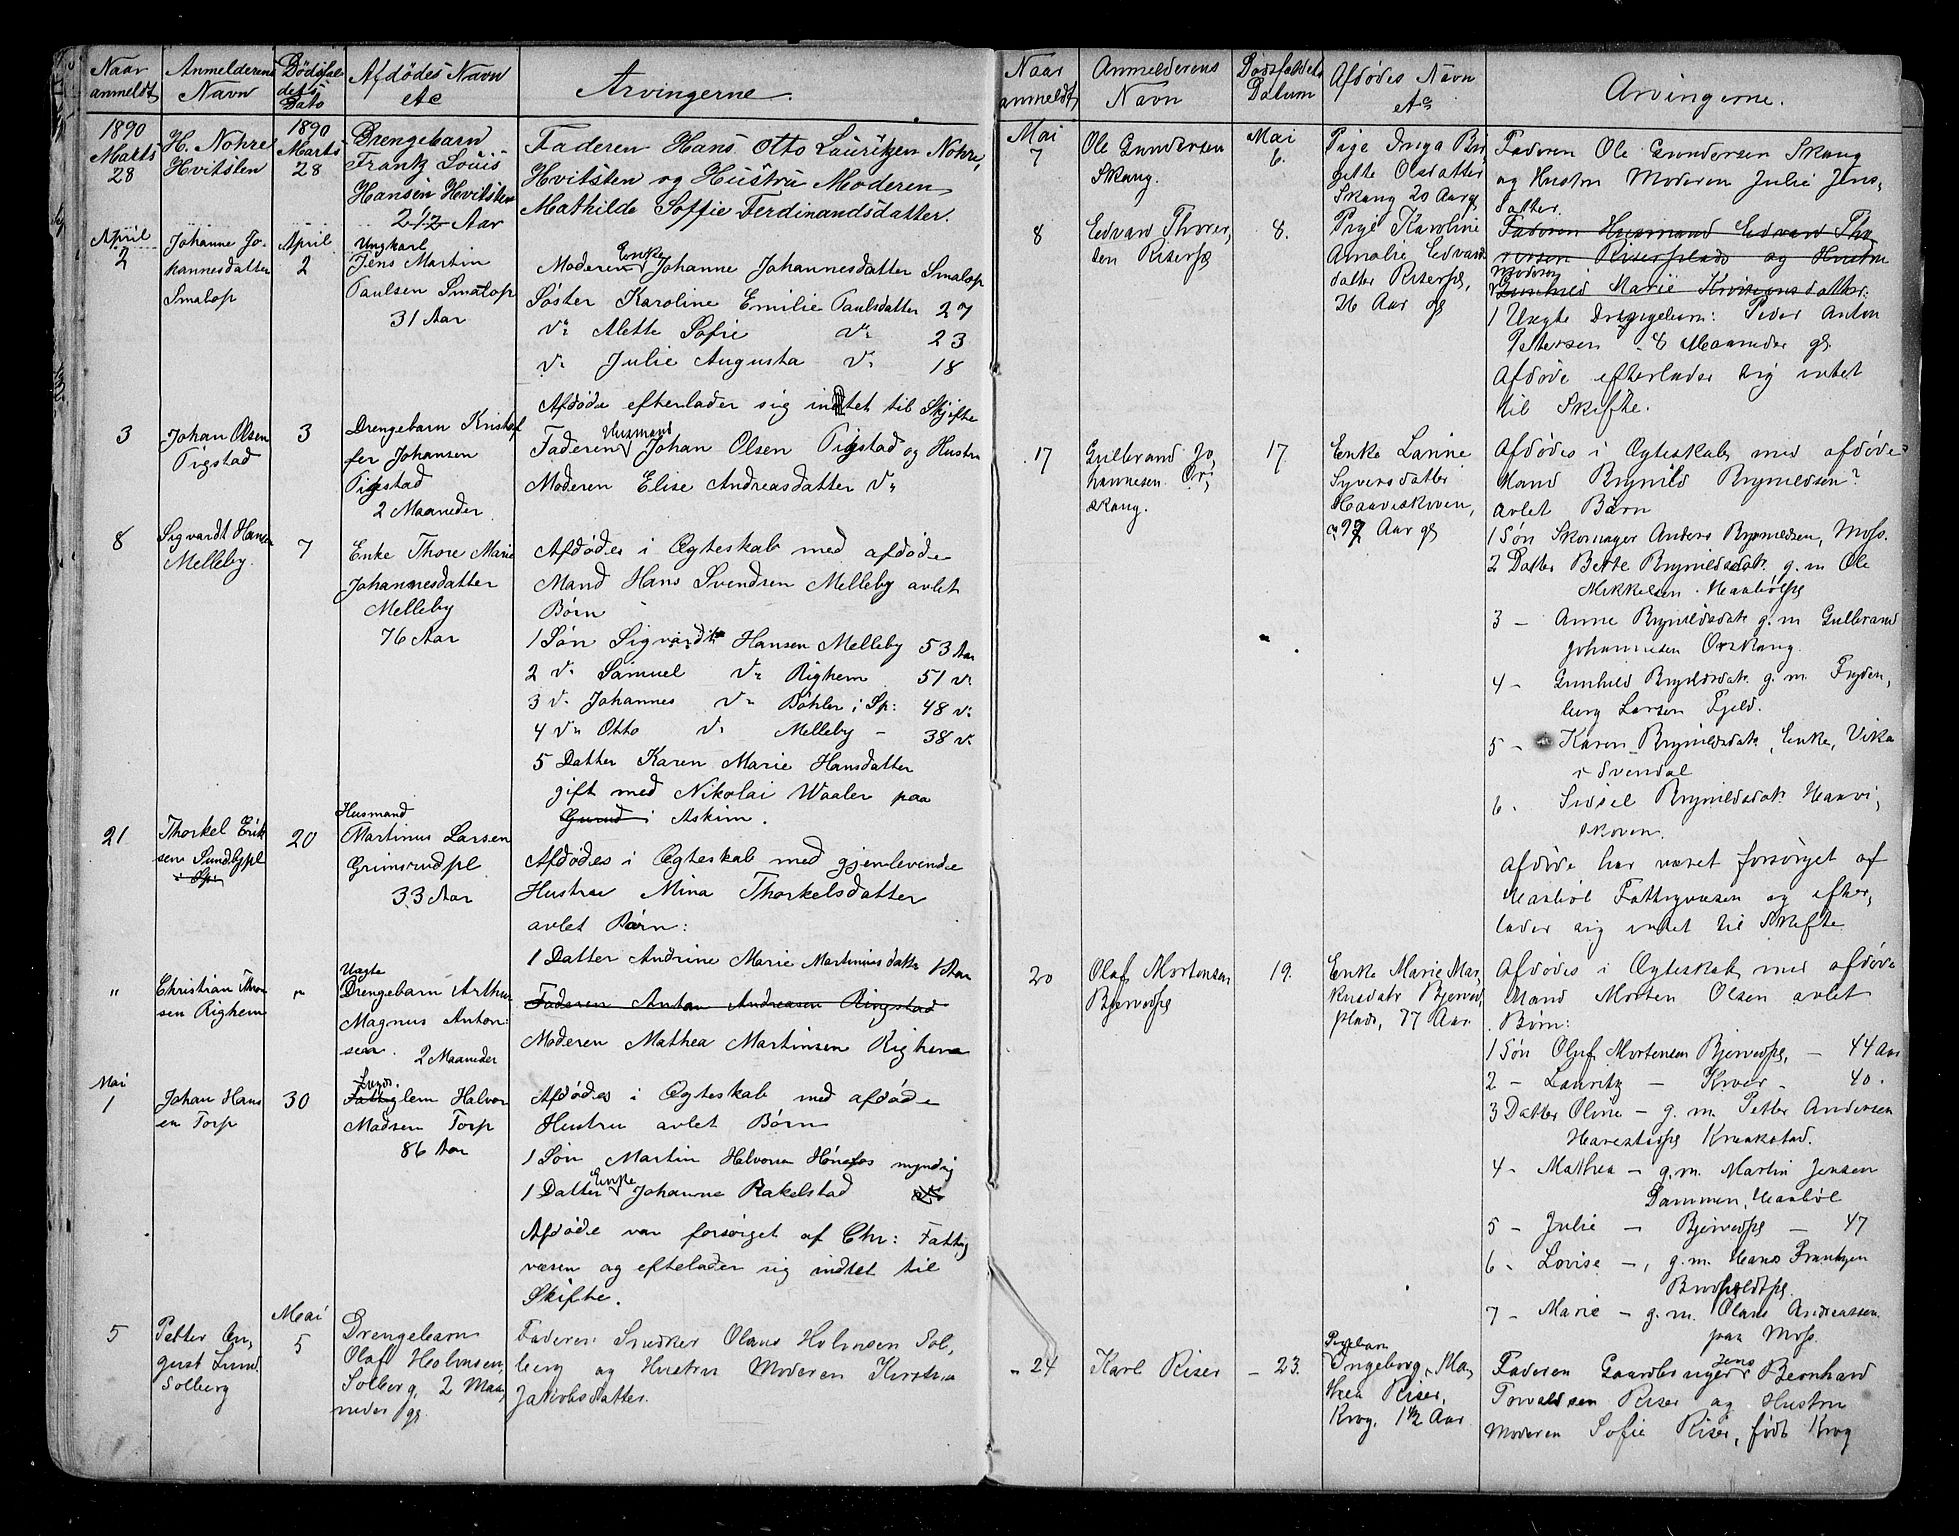 Naar anmeldt
Anmelderens Navn
Dødsfaldets Dato
Afdødes Navn etc
Arvingerne.
1890
Marts
28
H. Nohre
Hvitsten
1890
Marts
28
Drengebarn
Frantz Louis
Hansen Hvitsten
2 1/2 Aar
Faderen Hans Otto Lauritzen Nohre,
Hvitsten og Hustru Moderen
Mathilde Soffie Ferdinandsdatter.
April
2
Johanne Jo-
hannesdatter
Smalop
April
2
Ungkarl
Jens Martin
Paulsen Smalop
31 Aar
Moderen Enke Johanne Johannesdatter Smalop
Søster Karoline Emilie Paulsdatter 27
do Alette Sofie do 23
do Julie Augusta do 18
Afdøde efterlader sig intet til Skifte
3
Johan Olsen
Pigstad
3
Drengebarn Kristof
fer Johansen
Pigstad
2 Maaneder
Faderen Husmand Johan Olsen Pigstad og Hustru
Moderen Elise Andreasdatter do
8
Sigvardt Hansen
Melleby.
7
Enke Thore Marie
Johannesdatter
Melleby
76 Aar
Afdødes i Ægteskab med afdøde
Mand Hans Svendsen Melleby avlet
Børn
1 Søn Sigvardt Hansen Melleby 53 Aar
2 do Samuel do Righem 51 do
3 do Johannes do Bøhler i Sp: 48 do
4 do Otto do Melleby - 38 do
5 Datter Karen Marie Hansdatter
gift med Nikolai Waaler paa
Gurud i Askim.
21
Thorkel Erik
sen Sundbypl
i Sp:
20
Husmand
Martinus Larsen
Grimsrudpl
33 Aar
Afdødes i Ægteskab med gjenlevende
Hustru Mina Thorkelsdatter
avlet Børn:
1 Datter Andrine Marie Martinusdatter 1 Aar
"
Christian Thor
sen Righem
"
Uægte
Drengebarn Arthur
Magnus Anton-
sen. 2 Maaneder
Faderen Anton Andreasen Ringstad
Moderen Mathea Martinsen Righem
Mai
1
Johan Hans
en Torp
30
Lægds
Fattiglem Halvor
Madsen Torp
86 Aar
Afdødes i Ægteskab med afdøde
Hustru avlet Børn
1 Søn Martin Halvorsen Hønefos myndig
1 Datter Enke Johanne Rakelstad
Afdøde var forsørget af Chr: Fattig
væsen og efterlader sig indtet til
Skifte.
5
Petter Au-
gust Lund
Solberg
Mai
5
Drengebarn
Olaf Holmsen,
Solberg, 2 Maa-
neder gl.
Faderen Snedker Olaus Holmsen Sol-
berg og Hustru Moderen Kirstine
Jakobsdatter.
Naar anmeldt
Anmelderens Navn
Dødsfaldets Datum
Afdødes Navn etc
Arvingerne.
Mai
7
Ole Gundersen
Skaug.
Mai
6.
Pige Inga Bir-
gette Olsdatter
Skaug 20 Aar gl
Faderen Ole Gundersen Skaug
og Hustru Moderen Julie Jens-
datter.
8
Edvard Thorer-
sen Riserpl
8.
Pige Karoline
Amalie Edvards
datter Riserpl,
26 Aar gl
Faderen Husmand Edvard Tho-
rersen Riserplads og Hustru
Moderen
Gunhild Marie Kristensdatter.
1 Uægte Drengebarn: Peder Anton
Pettersen - 8 Maaneder gl.
Afdøde efterlader sig intet
til Skifte.
17
Gulbrand Jo-
hannesen Ør-
skaug.
17
Enke Larine
Syversdatter
Haaviskoven,
Aar gl
Afdødes i Ægteskab med afdøde
Mand Brynild Brynildsen?
avlet Børn
1 Søn Skomager Anders Brynildsen, Moss.
2 Datter Berte Brynildsdatr g.m Ole
Mikkelsen Haabølpl
3 - Anne Brynildsdatr g.m Gulbrand
Johannesen Ørskaug.
4 - Gunhild Brynildsdatr g.m. Fryden-
berg Larsen Fjeld.
5 - Karen Brynildsdatr, Enke, Vika
i Svendal
6. Sidsel Brynildsdatr Haavi-
skoven.
Afdøde har været forsørget af
Haabøl Fattigvæsen og efter-
lader sig intet til Skifte
20
Olaf Mortensen
Bjerverpl
19.
Enke Marie Mar-
kusdatr Bjerver-
plads, 77 Aar
Afdødes i Ægteskab med afdøde
Mand Morten Olsen avlet
Børn:
1 Søn Oluf Mortensen Bjerverpl, - 44 Aar
2 - Lauritz - Kroer - 40.
3 Datter Oline - g.m. Petter Andersen
Kraakstad.
4 - Mathea - g.m. Martin Jensen
Dammen, Haabøl
5 - Julie - Bjerverpl - 47
6 - Lovise -, g.m. Hans Frantzen
7 - Marie - g.m. Olaus Andreassen
paa Moss.
- 24
Karl Riser
- 23.
Pigebarn
Ingeborg Ma-
thea Riser,
Krog, 1 1/2 Aar
Faderen Gaardbruger Jens Bernhard
Torvaldsen Riser og Hustru
Moderen Sofie Riser, født Krog